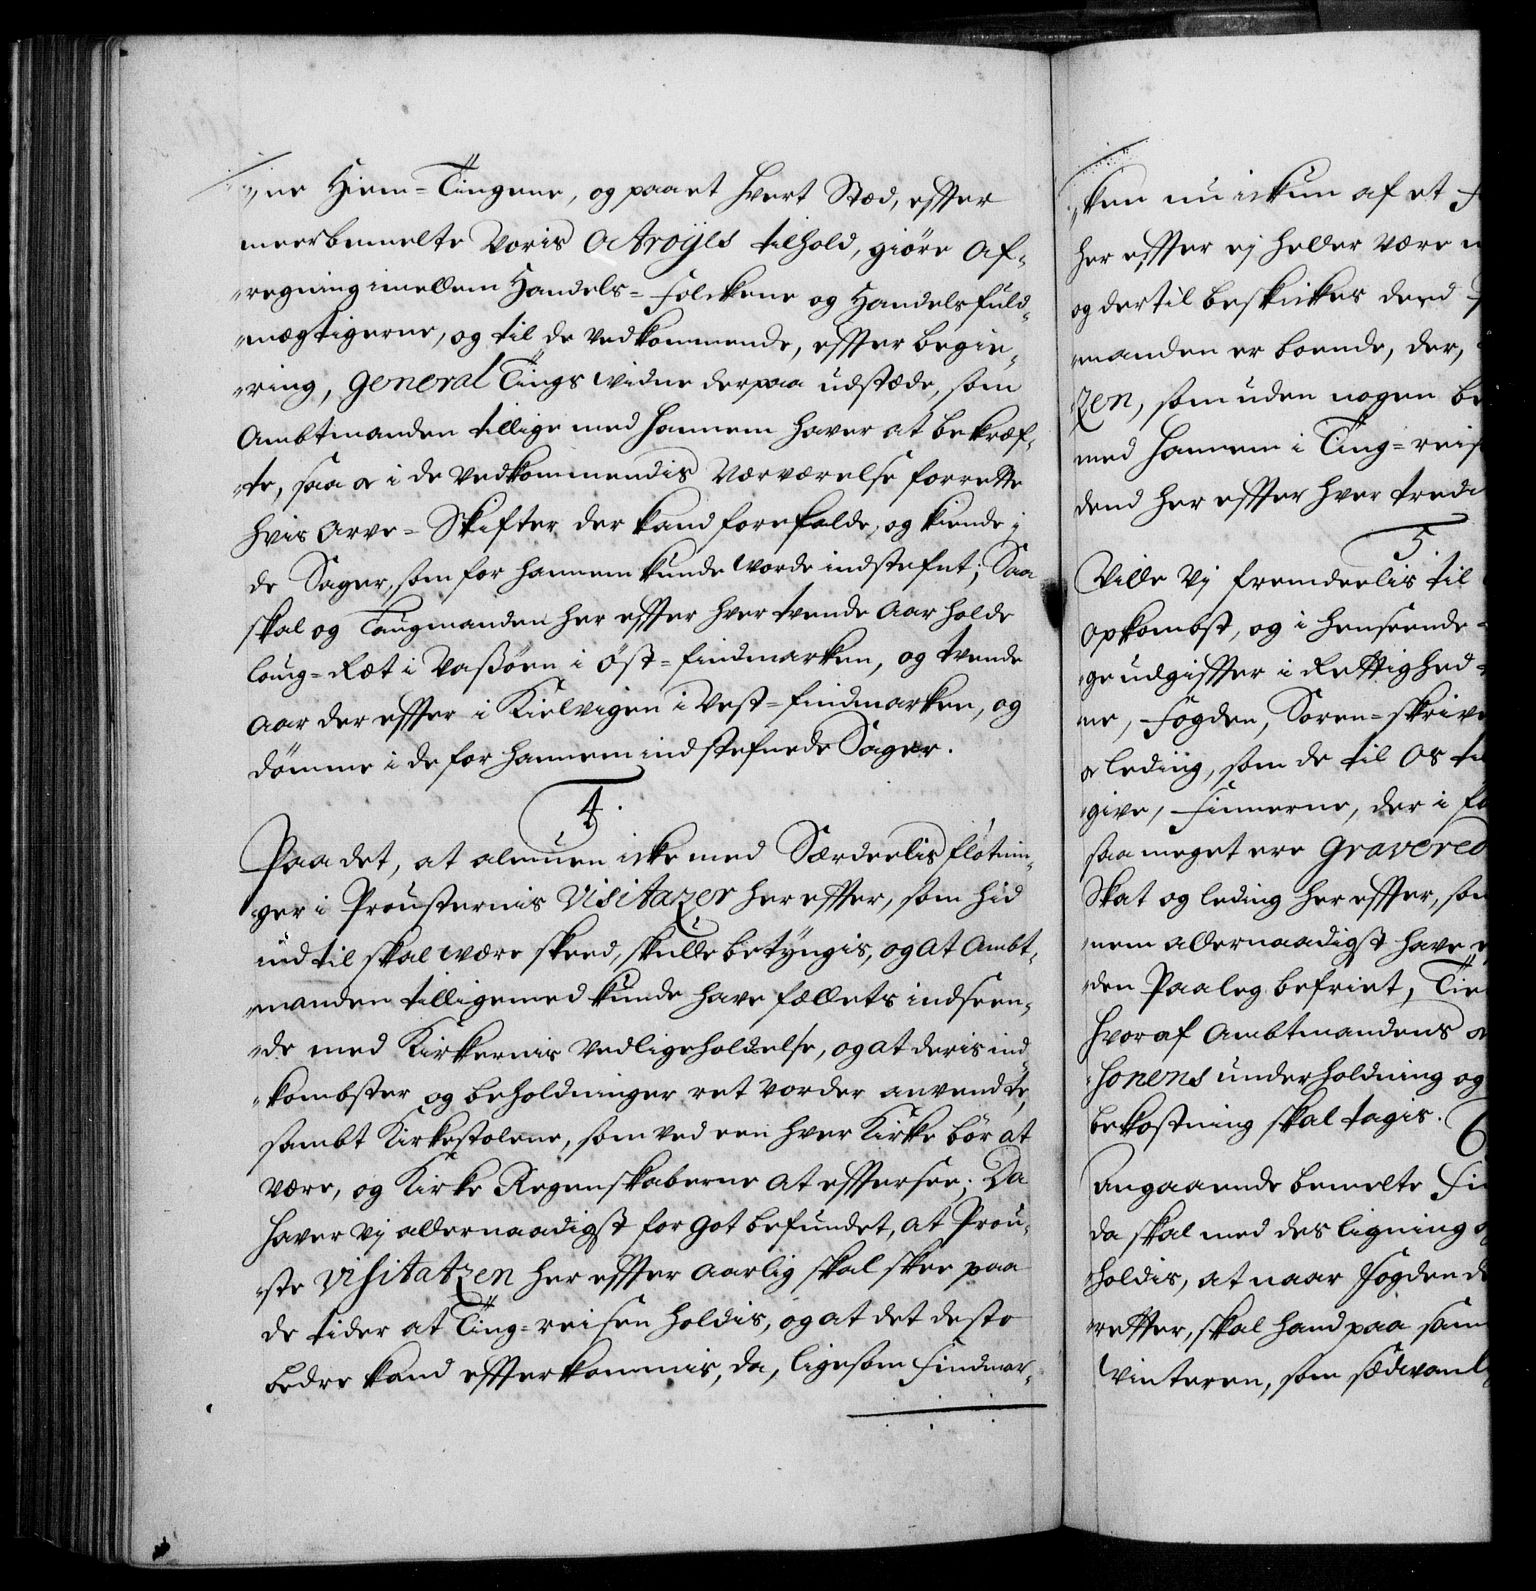 ne Hiem-Tingene, og paa et hvert Stæd, effter
meerbemelte voris Octroÿes tilhold, giöre Af-
regning imellem Handels-Folckene og Handels fuld-
mægtigerne, og til de vedkommende, effter begie-
ring, General Tings vidne derpaa udstæde, som
Ambtmanden tillige med hannem haver at bekræf-
te, saa oc i de vedkommendis Værværelse forrette
hvis Arve-Skifter der kand forefalde, og kiende i
de Sager, som for hannem kunde vorde indstefnt; Saa
skal og Laugmanden her effter hver tvende Aar holde
laug-Ræt i Vaßöen i Öst-Findmarken, og tvende
Aar der effter i Kielvigen i Vest-Findmarken, og
dömme i de for hannem indstefnede Sager.
4.
Paa det, at almuen icke med Særdeelis fløtnin-
ger i Prousternis Visitazer her effter, som hid
ind til skal være skeed, skulle betÿngis, og at Ambt-
manden tilligemed kunde have fællets indseen-
de med Kirkernis vedligeholdelse, og at deris ind-
kombster og beholdninger ret vorder anvendte,
sambt Kirkestolene, som ved een hver Kirke bör at
være, og Kirke Regenskaberne at effterse; Da
haver Vj allernaadigst for got befundet, at Prou-
ste Visitatzen her effter aarlig skal skee paa
de tider at Ting-reisen holdis, og at det desto
bedre kand effterkommis, da, ligesom Findmar-
ken nu ickun af et
her effter ej heller være
og dertil beskickes deed
manden er boende, der,
zen, som uden nogen be
med hannem i Ting-reis
dend her effter hver tredi
5.
Ville Vj fremdeelis til
Opkombst, og i henseende
ge udgiffter i Rettighed
ne, Fogden, Soren-skrive
oc leding, som de til Os til
give, Finnerne, der i
saa meget ere Gravered
Skat og leding her effter, som
nem allernaadigst have
den Paaleg befriet, Tie
hvoraf Ambtmandens
sonens underholdning og
bekostning skal tagis.
6
Angaaende bemelte Fi
da skal med des ligning
holdis, at naar Fogden
retter, skal hand paa sam
Vinteren, som sædvanl